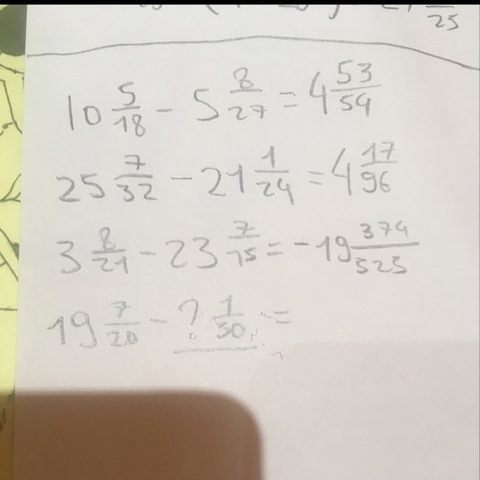 25
10 5/18 - 5 8/27 = 4 53/54
25 7/32 - 21 1/24 = 4 17/96
3 8/21 - 23 7/75 = -19 374/525
19 7/20 - ? 1/50 =